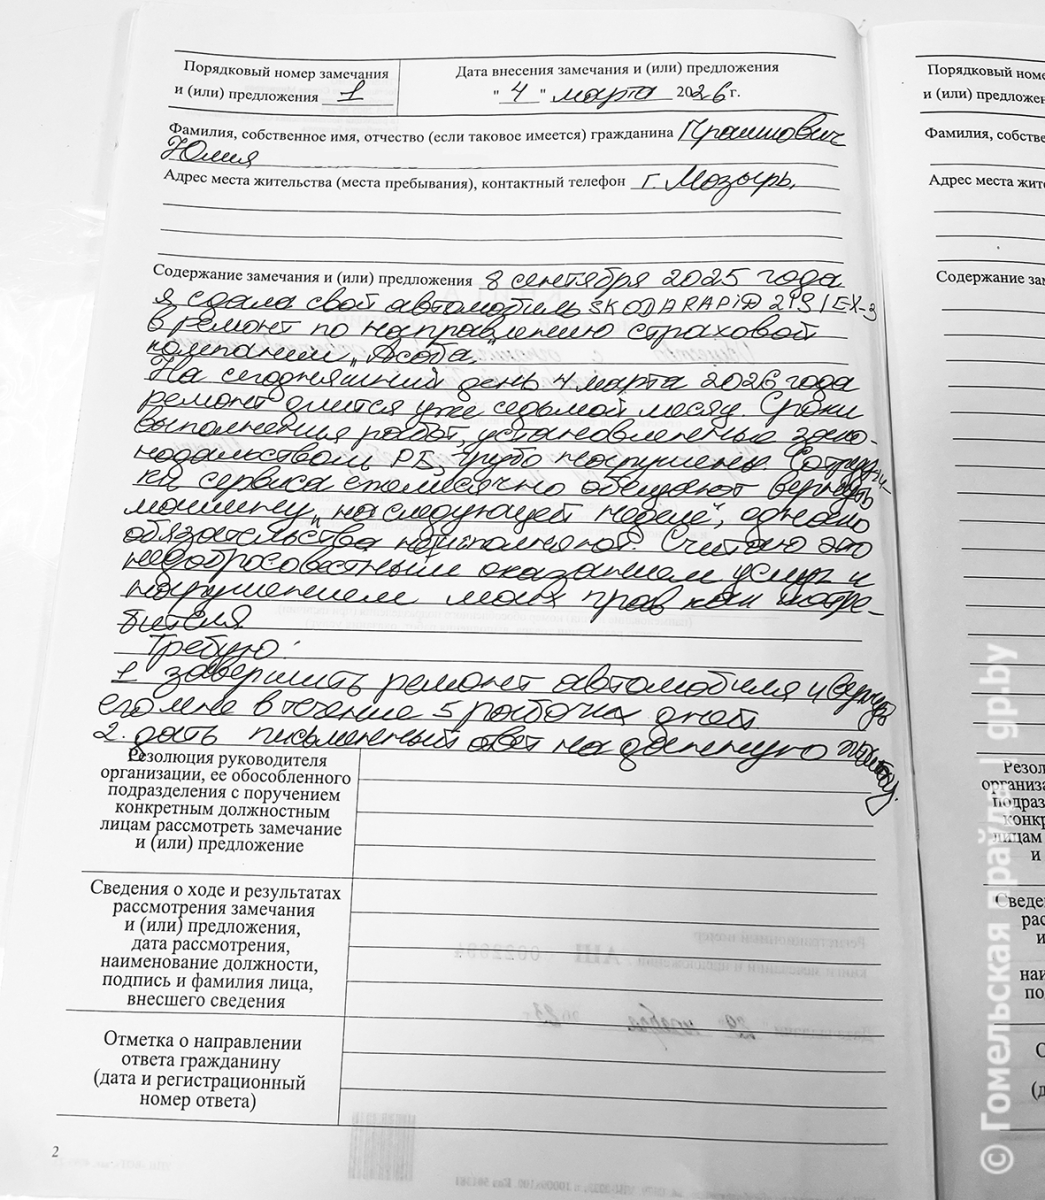 Порядковый номер замечания
и (или) предложения 1
Дата внесения замечания и (или) предложения
"4" марта 2026 г.
Фамилия, собственное имя, отчество (если таковое имеется) гражданина
Юлия
Адрес места жительства (места пребывания), контактный телефон г. Мозырь,
Содержание замечания и (или) предложения 8 сентября 2025 года
я сдала свой автомобиль SKODA RAPiD
в ремонт по направлению страховой
компании „Асоба„
На сегодняшний день 4 марта 2026 года
ремонт длится уже седьмой месяц. Сроки
выполнения работ, установленные зако-
нодательством РБ, грубо нарушены. Сотрудни-
ки сервиса ежемесячно обещают вернуть
машину „на следующей неделе", однако
обязательства не исполняют. Считаю это
недобросовестным оказанием услуг и
нарушением моих прав как потре-
бителя.
Требую:
1 завершить ремонт автомобиля и вернуть
его мне в течение 5 рабочих дней
2. дать письменный ответ на данную жалобу.
Резолюция руководителя
организации, ее обособленного
подразделения с поручением
конкретным должностным
лицам рассмотреть замечание
и (или) предложение
Сведения о ходе и результатах
рассмотрения замечания
и (или) предложения,
дата рассмотрения,
наименование должности,
подпись и фамилия лица,
внесшего сведения
Отметка о направлении
ответа гражданину
(дата и регистрационный
номер ответа)
2
Порядковый номе
и (или) предложен
Фамилия, собстве
Адрес места жит
Содержание зам
Резол
организа
подраз
конкр
лицам
и
Сведе
рас
и
наи
по
О
(д
© Гомельская праўда | gp.by